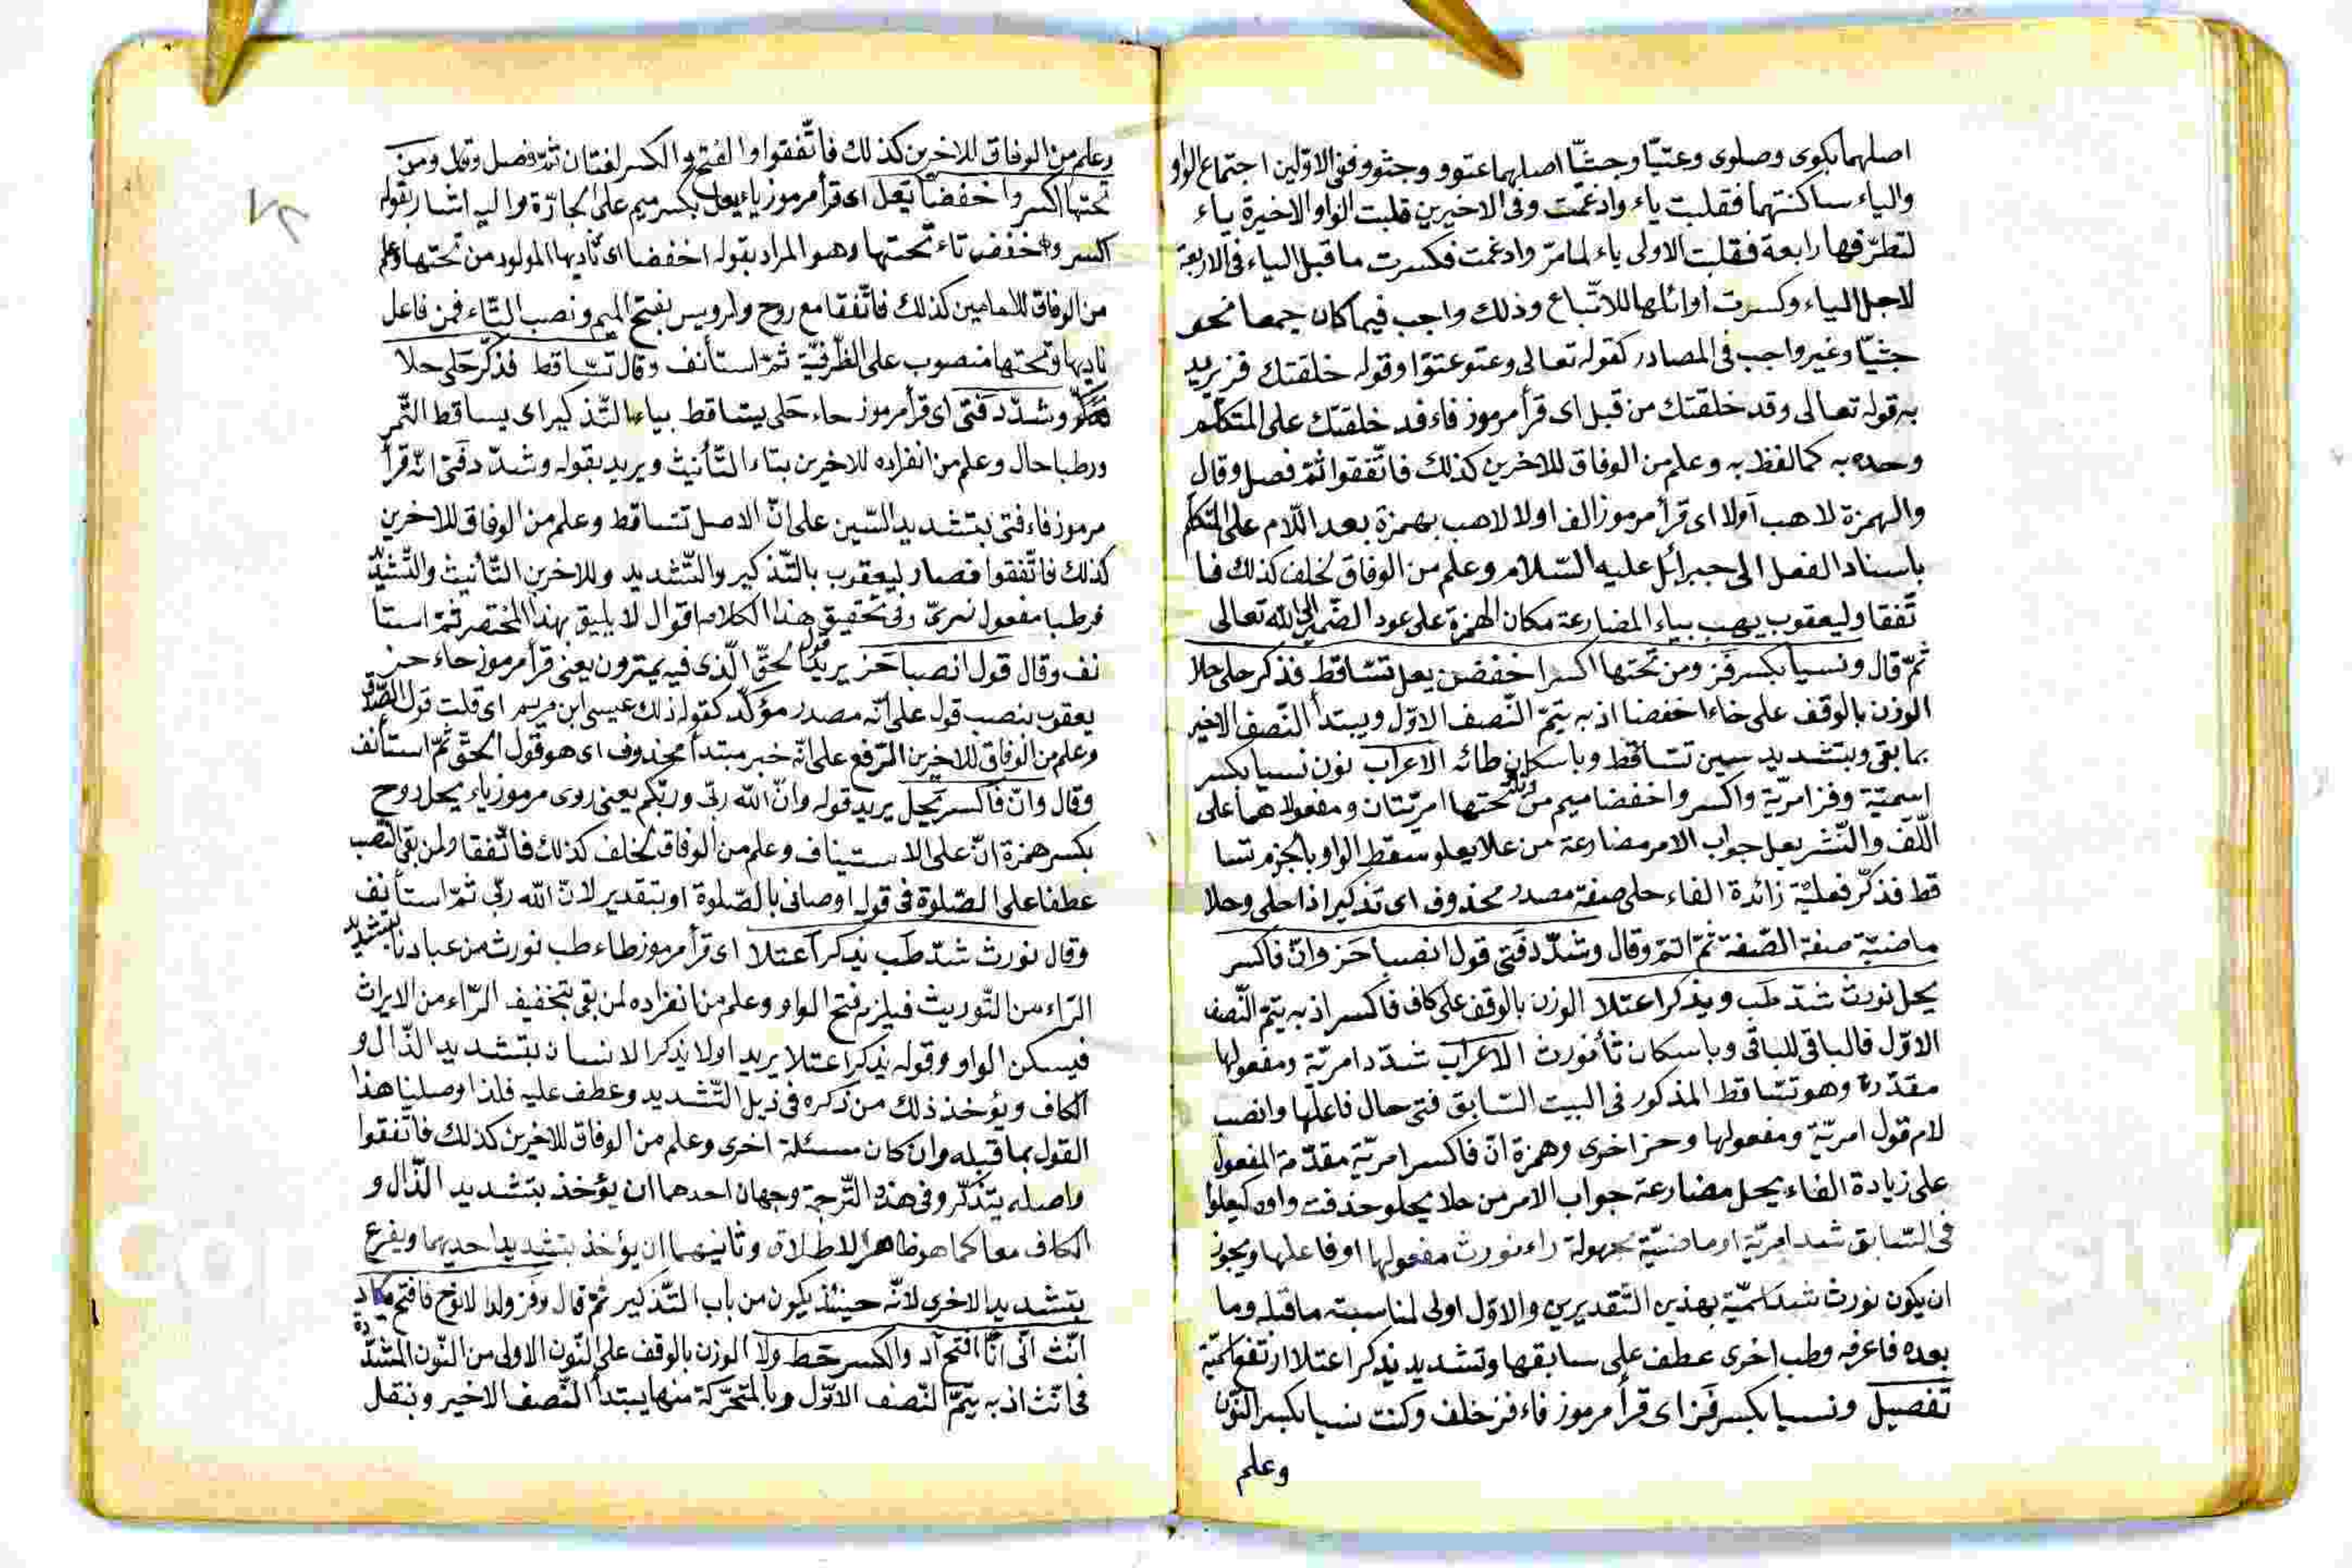 اصلهما بكوى وصلوى وعتيّا وجثيّا اصلهما عتوو وجثوو ففى الاوّلين اجتماع الواو
والياء ساكنتهما فقلبت ياء وادغمت وفى الاخيرين قلبت الواو الاخيرة ياء
لتطرّفها رابعة فقلبت الاولى ياء لما مرّ وادغمت فكسرت ما قبل الياء فى الاربعة
لاجل الياء وكسرت اوائلها للاتّباع وذلك واجب فيما كان جمعا نحو
جثيّا وغير واجب فى المصادر كقوله تعالى وعتو عتوّا وقوله خلقتك فز يريد
به قوله تعالى وقد خلقتك من قبل اى قرأ مرموز فاء فد خلقتك على المتكلّم
وحده به كما لفظ به وعلم من الوفاق للاخرين كذلك فاتّفقوا ثمّ فصل وقال
والهمزة لاهب اَولا اى قرأ مرموز الف اولا لاهب بهمزة بعد اللّام على المتكلّم
باسناد الفعل الى جبرائل عليه السّلام وعلم من الوفاق لخلف كذلك فا
تّفقا وليعقوب يهب بياء المضارعة مكان الهمزة على عود الضّمير الى الله تعالى
ثمّ قال ونسيا بكسر فز ومن تحتها اكسرا خفضن يعل تسّاقط فذكر حلى حلا
الوزن بالوقف على خاء اخفضا اذ به يتمّ النّصف الاوّل ويبتدأ النّصف الاخير
بما بقى وبتشديد سين تسّاقط وباسكان طائه الاعراب نون نسيا بكسر
اسميّة وفز امريّة واكسر واخفضا ميم من وتاء تحتها امريّتان ومفعولاهما على
اللّفّ والنّشر يعل جواب الامر مضارعة من علا يعلو سقط الواو بالجزم تسا
قط فذكّر فعليّة زائدة الفاء حلى صفة مصدر محذوف اى تذكيرا ذا حلى وحلا
ماضيّة صفة الصّفة ثمّ اتمّ وقال وشدّد فتى قول انصبا حَز وانّ فاكسر
يحل نورث شدّ طَب ويذكر اعتلا الوزن بالوقف على كاف فاكسر اذ به يتمّ النّصف
الاوّل فالباقى للباقى وباسكان ثأ نورث الاعراب شدّد امريّة ومفعولها
مقدّر وهو تسّاقط المذكور فى البيت السّابق فتى حال فاعلها وانصب
لام قول امريّة ومفعولها وحز اخرى وهمزة انّ فاكسر امريّة مقدّمة المفعول
على زيادة الفاء يحل مضارعة جواب الامر من حلا يحلو حذفت واوه كيعلو
فى السّابق شد امريّة او ماضيّة مجهولة راء نورث مفعولها او فاعلها ويجوز
ان يكون نورث شد اسميّة بهذين التّقديرين والاوّل اولى لمناسبته ما قبله وما
بعده فاعرفه وطب اخرى عطف على سابقها وتشديد يذكر اعتلا ارتفع اسميّة
تفصيل ونسيا بكسر فز اى قرأ مرموز فاء فز خلف وكنت نسيا بكسر النّون
وعلم
وعلم من الوفاق للاخرين كذلك فاتّفقوا والفتح والكسر لغتان ثمّ فصل وقال ومن
تحتها اكسر واخفضا يعل اى قرأ مرموز ياء يعل بكسر ميم على الجارّة واليه اشار بقوله
اكسر واخفض تاء تحتها وهو المراد بقوله اخفضا اى ناديها المولود من تحتها وعلم
من الوفاق للامامين كذلك فاتّفقا مع روح ولرويس بفتح الميم ونصب التّاء فمن فاعل
ناديها وتحتها منصوب على الظّرفيّة ثمّ استأنف وقال تسّاقط فذكّر حَلى حلا
وشدّد فتى اى قرأ مرموز حاء حَلى يسّاقط بياء التّذكير اى يساقط الثّمر
ورطبا حال وعلم من انفراده للاخرين بتاء التّأنيث ويريد بقوله وشدّد فتى انّه قرأ
مرموز فاء فتى بتشديد السّين على انّ الاصل تتساقط وعلم من الوفاق للاخرين
كذلك فاتّفقوا فصار ليعقوب بالتّذكير والتّشديد وللاخرين التّأنيث والتّشديد
فرطبا مفعول وفى تحقيق هذا الكلام اقوال لا يليق بهذا المختصر ثمّ استأ
نف وقال قول انصبا حَز يريد قول الحقّ الّذى فيه يمترون يعنى قرأ مرموز حاء حز
يعقوب بنصب قول على انّه مصدر مؤكّد كقوله ذلك عيسى ابن مريم اى قلت قول الصّدق
وعلم من الوفاق للاخرين الرّفع على انّه خبر مبتدأ محذوف اى هو قول الحقّ ثمّ استأنف
وقال وانّ فاكسر يحل يريد قوله وانّ الله ربّى وربّكم يعنى روى مرموز ياء يحل روح
بكسر همزة انّ على الاستيناف وعلم من الوفاق لخلف كذلك فاتّفقا ولمن بقى النّصب
عطفا على الصّلوة فى قوله اوصانى بالصّلوة او بتقدير لانّ الله ربّى ثمّ استأنف
وقال نورث شدّ طَب يذكر اعتلا اى قرأ مرموز طاء طب نورث من عبادنا بتشديد
الرّاء من التّوريث فيلزم فتح الواو وعلم من انفراده لمن بقى بتخفيف الرّاء من الايراث
فيسكن الواو وقوله يذكر اعتلا يريد اولا يذكر الانسان بتشديد الذّال و
الكاف ويؤخذ ذلك من ذكره فى ذيل التّشديد وعطف عليه فلذا وصلنا هذا
القول بما قبله وان كان مسئلة اخرى وعلم من الوفاق للاخرين كذلك فاتّفقوا
واصله يتذكّر وفى هذه التّرجمة وجهان احدهما ان يؤخذ بتشديد الذّال و
الكاف معا كما هو ظاهر الاطلاق وثانيهما ان يؤخذ بتشديد احديهما ويفرع
بتشديد الاخرى لانّه حينئذ يكون من باب التّذكير ثمّ قال وفز ولدا لا نوح فافتح يكاد
انّث انّى انا افتح آد والكسر حَط ولا الوزن بالوقف على النّون الاولى من النّون المشدّدة
فى انّث اذ به يتمّ النّصف الاوّل وبالمتحرّكة منها يبتدأ النّصف الاخير وبنقل